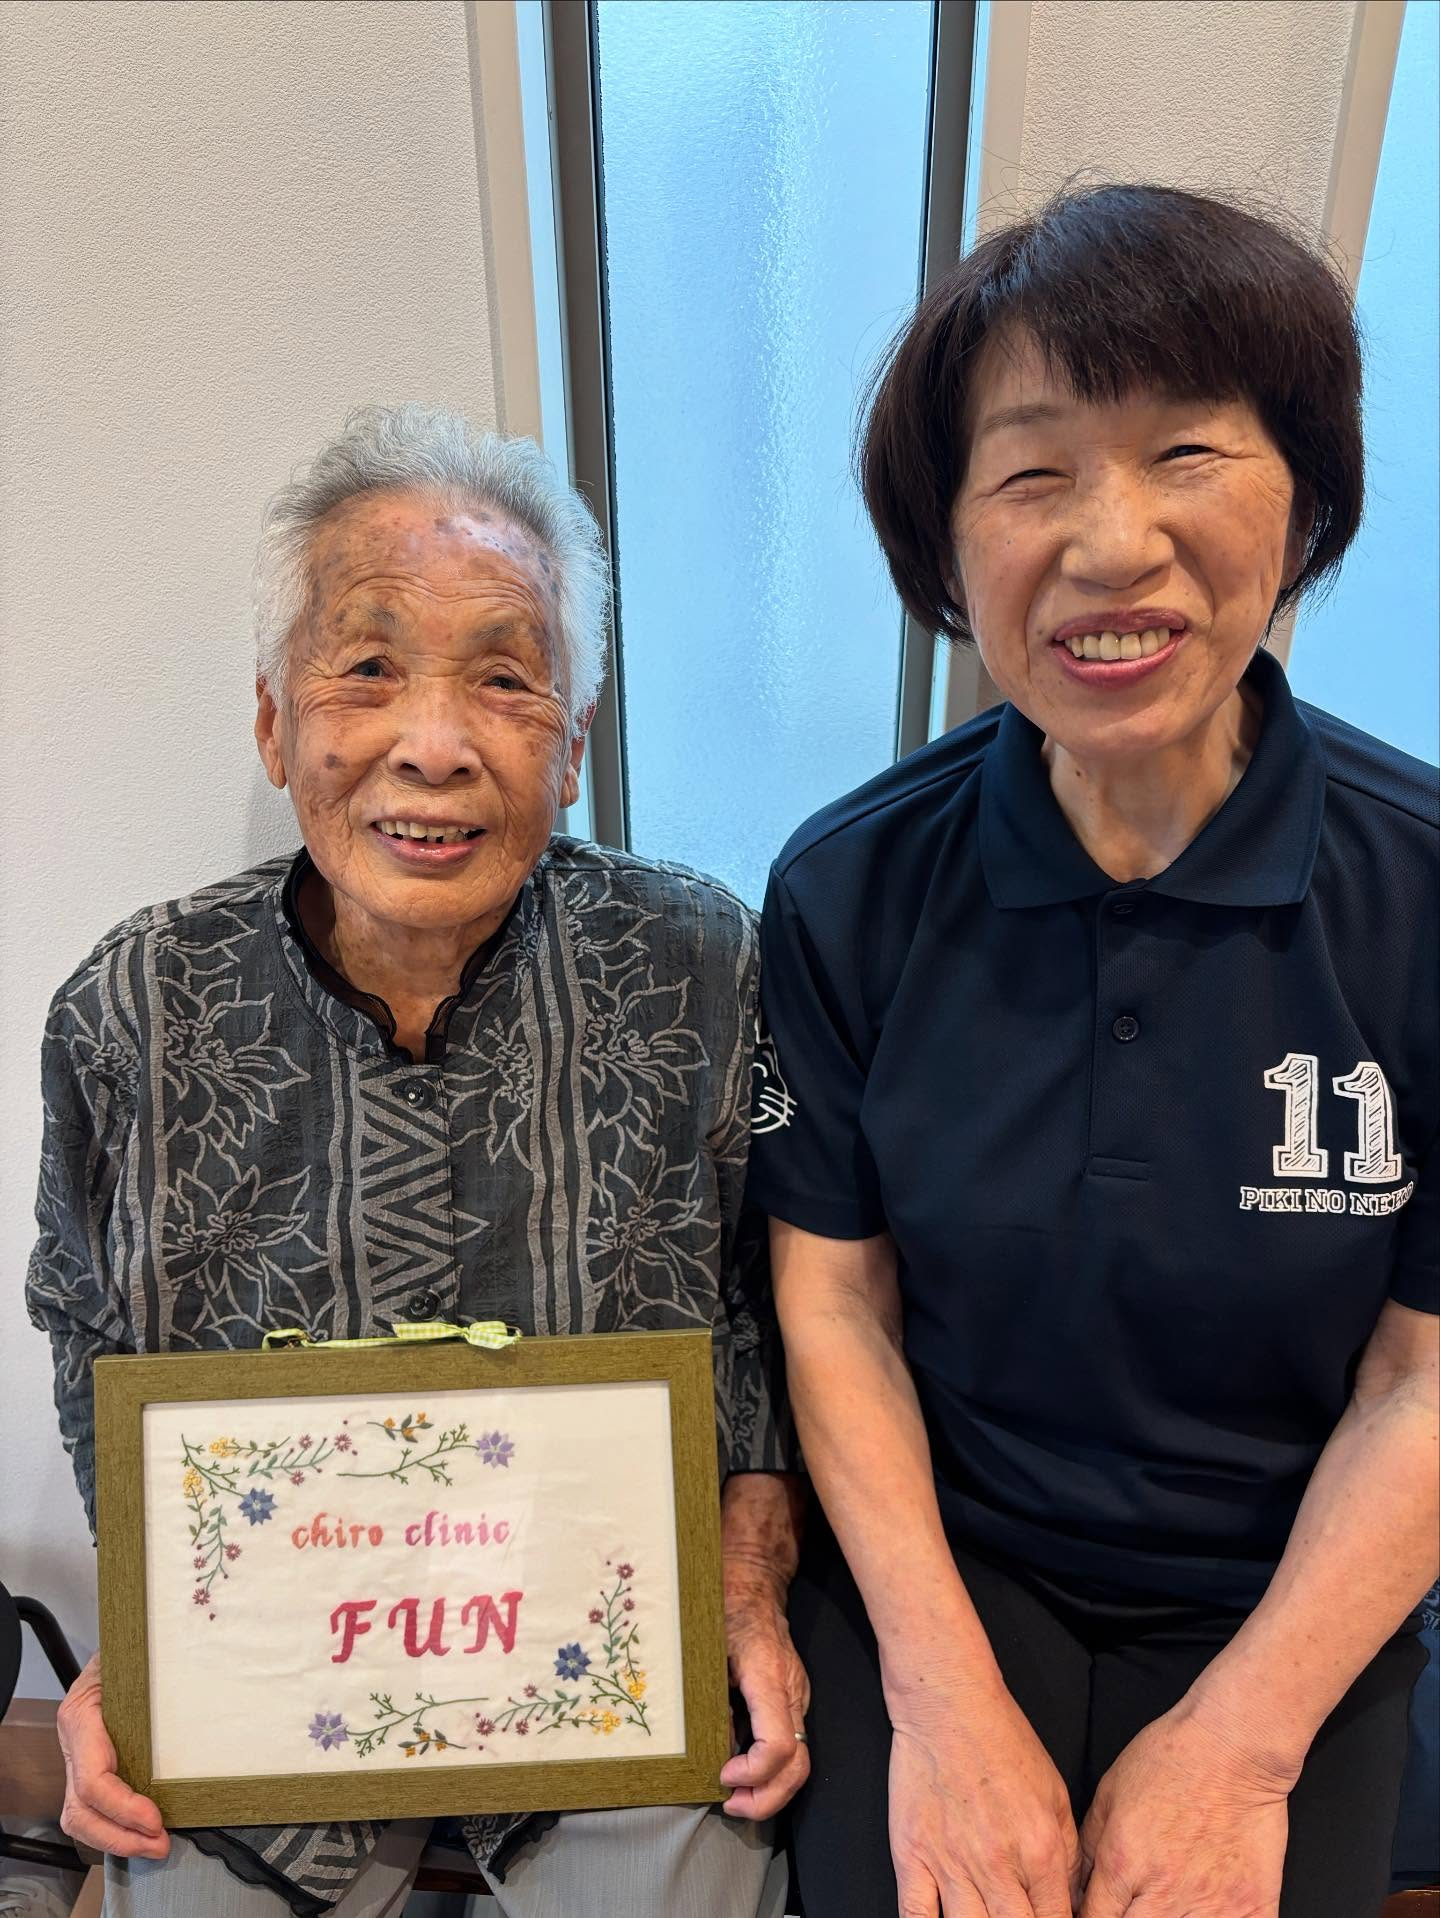 chiro clinic
FUN
11
PIKI NO NEKO